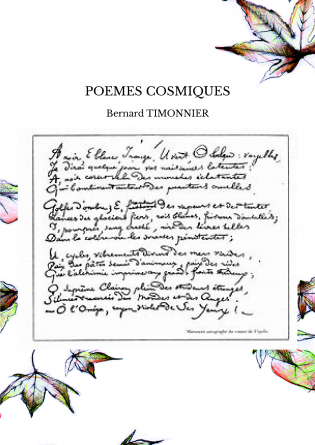 POEMES COSMIQUES
Bernard TIMONNIER
A noir, E blanc, I rouge, U vert, O bleu : voyelles,
Je dirai quelque jour vos naissances latentes :
A, noir corset velu des mouches éclatantes
Qui bombinent autour des puanteurs cruelles,
Golfes d'ombre ; E, des vapeurs et des tentes,
Lances des glaciers fiers, rois blancs, frissons d'ombelles ;
I, pourpres, sang craché, rire des lèvres belles
Dans la colère ou les ivresses pénitentes ;
U, cycles, vibrements divins des mers virides,
Paix des pâtis semés d'animaux, paix des rides
Que l'alchimie imprime aux grands fronts studieux ;
O, Suprême Clairon plein des strideurs étranges,
Silences traversés des Mondes et des Anges :
— O l'Oméga, rayon violet de Ses Yeux !
Manuscrit autographe du sonnet de